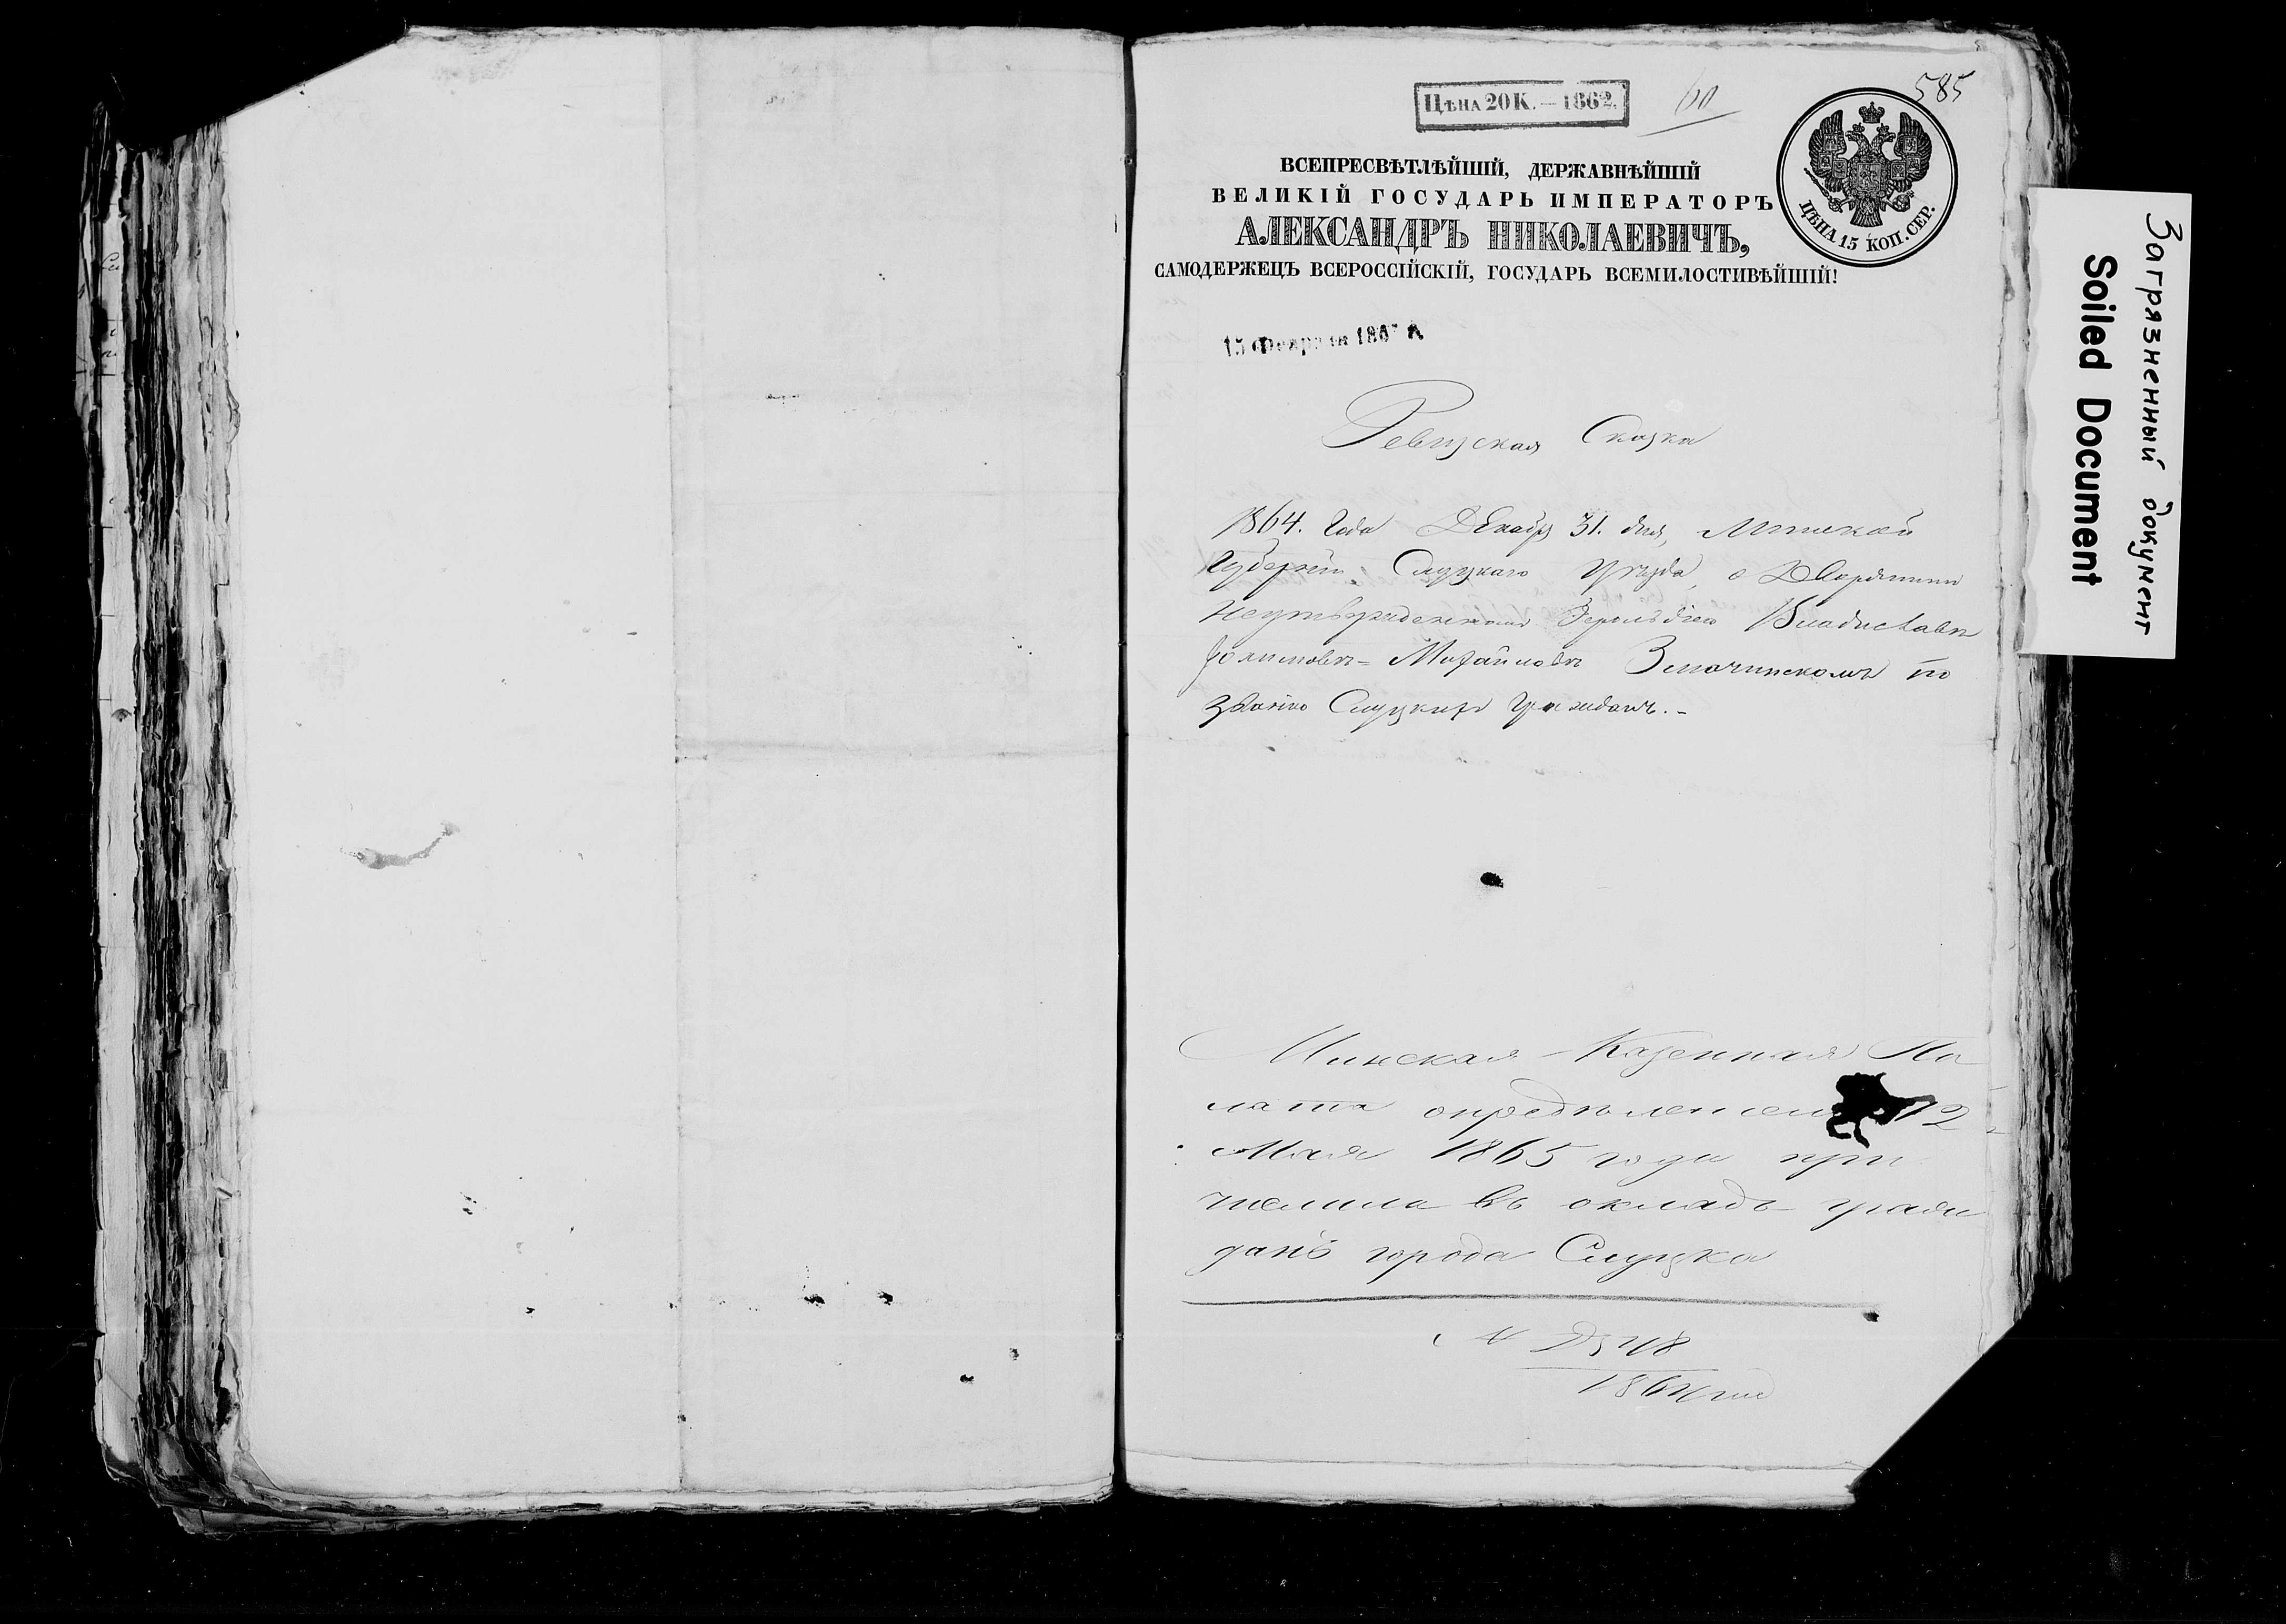 585
Цѣна 20 К. — 1862.
60
ВСЕПРЕСВѢТЛѢЙШІЙ, ДЕРЖАВНѢЙШІЙ
ВЕЛИКІЙ ГОСУДАРЬ ИМПЕРАТОРЪ
АЛЕКСАНДРЪ НИКОЛАЕВИЧЪ,
САМОДЕРЖЕЦЪ ВСЕРОССІЙСКІЙ, ГОСУДАРЬ ВСЕМИЛОСТИВѢЙШІЙ!
ЦѢНА 15 КОП. СЕР.
15 Февраля
Ревизская Сказка
1864. Года Декабр 31. дня, Минской
Губерніи Слуцкаго Уѣзда, о Дворянинѣ
Неутвержденномъ Герольдіею Владиславѣ
Михайловѣ по
званію Слуцкихъ Гражданъ. -
Минская Казенная Па
лата опредѣленіемъ 12
Мая 1865 года при
числила въ окладъ граж
данъ города Слуцка
1864 год
Загрязненный документ
Soiled Document